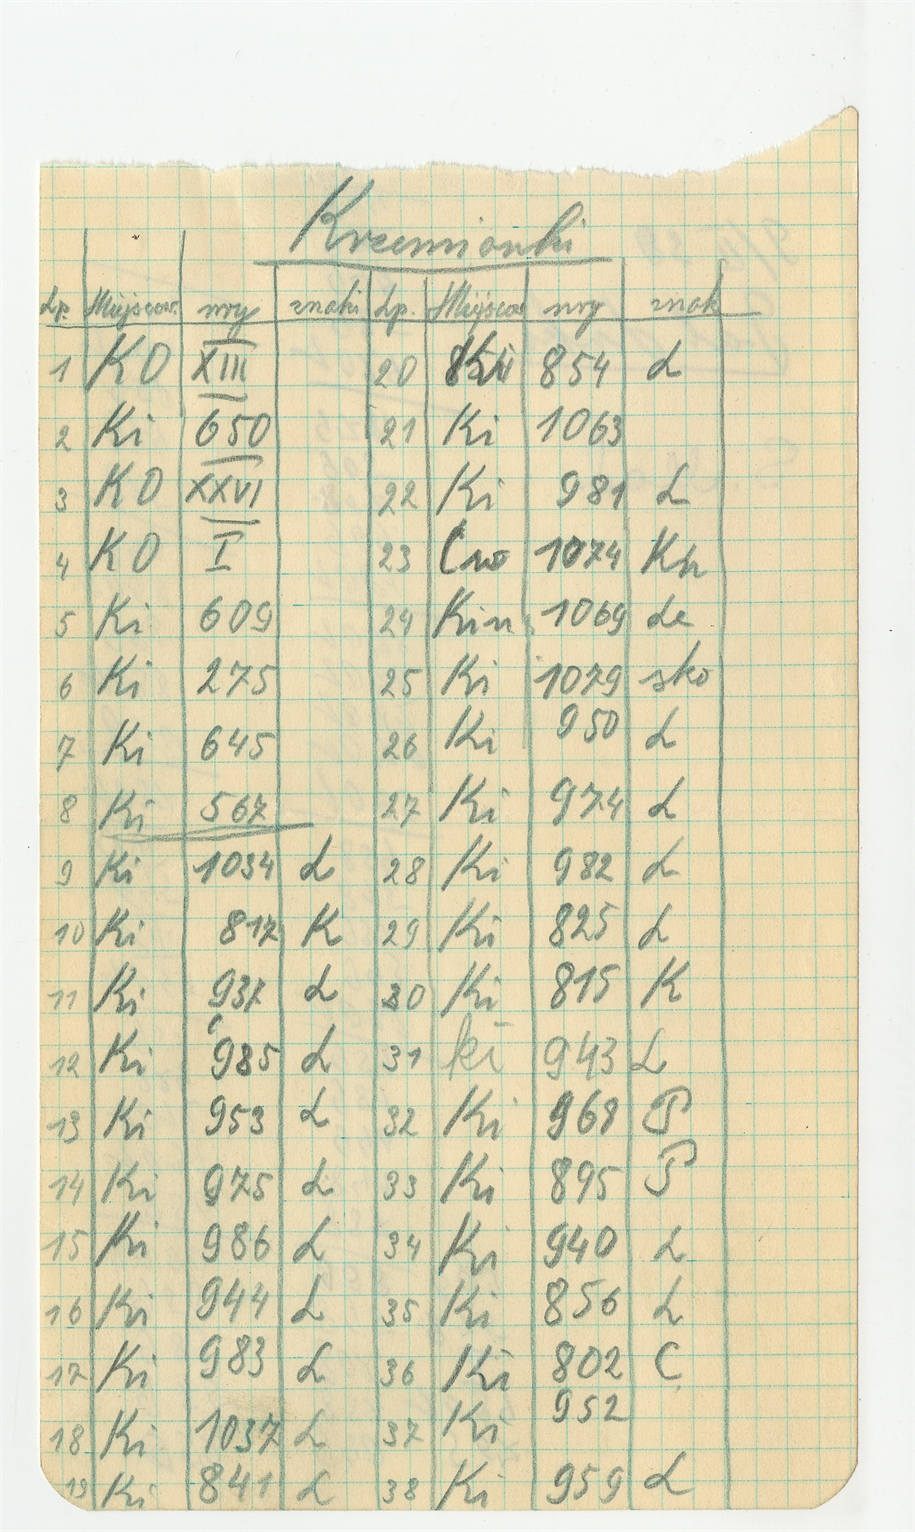 Krzemionki
Lp. Miejscow. nry znaki Lp. Miejscow nry znak
1 KO XIII 20 Ki 854 L
2 Ki 650 21 Ki 1063
3 KO XXVI 22 Ki 981 L
4 KO I 23 Cwo 1074 Kh
5 Ki 609 24 Kin 1069 Le
6 Ki 275 25 Ki 1079 sko
7 Ki 645 26 Ki 950 L
8 Ki 567 27 Ki 974 L
9 Ki 1034 L 28 Ki 982 L
10 Ki 817 K 29 Ki 825 L
11 Ki 937 L 30 Ki 815 K
12 Ki 985 L 31 ki 943 L
13 Ki 953 L 32 Ki 968 P
14 Ki 975 L 33 Ki 895 P
15 Ki 986 L 34 Ki 940 L
16 Ki 944 L 35 Ki 856 L
17 Ki 983 L 36 Ki 802 C
18 Ki 1037 L 37 Ki 952
19 Ki 841 L 38 Ki 959 L